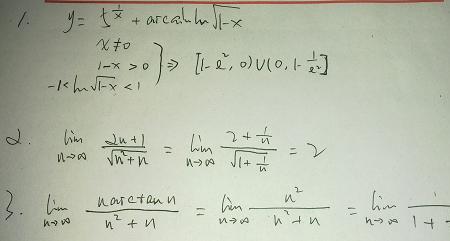 1. y = 5^(1/x) + arcsin ln √(1-x)
x ≠ 0
1-x > 0 } ⇒ [1-e², 0) ∪ (0, 1-1/e²]
-1< ln √(1-x) < 1
2. lim n→∞ (2n+1)/√(n²+n) = lim n→∞ (2+1/n)/√(1+1/n) = 2
3. lim n→∞ (n arctan n)/(n²+n) = lim n→∞ n²/(n²+n) = lim n→∞ 1/(1+